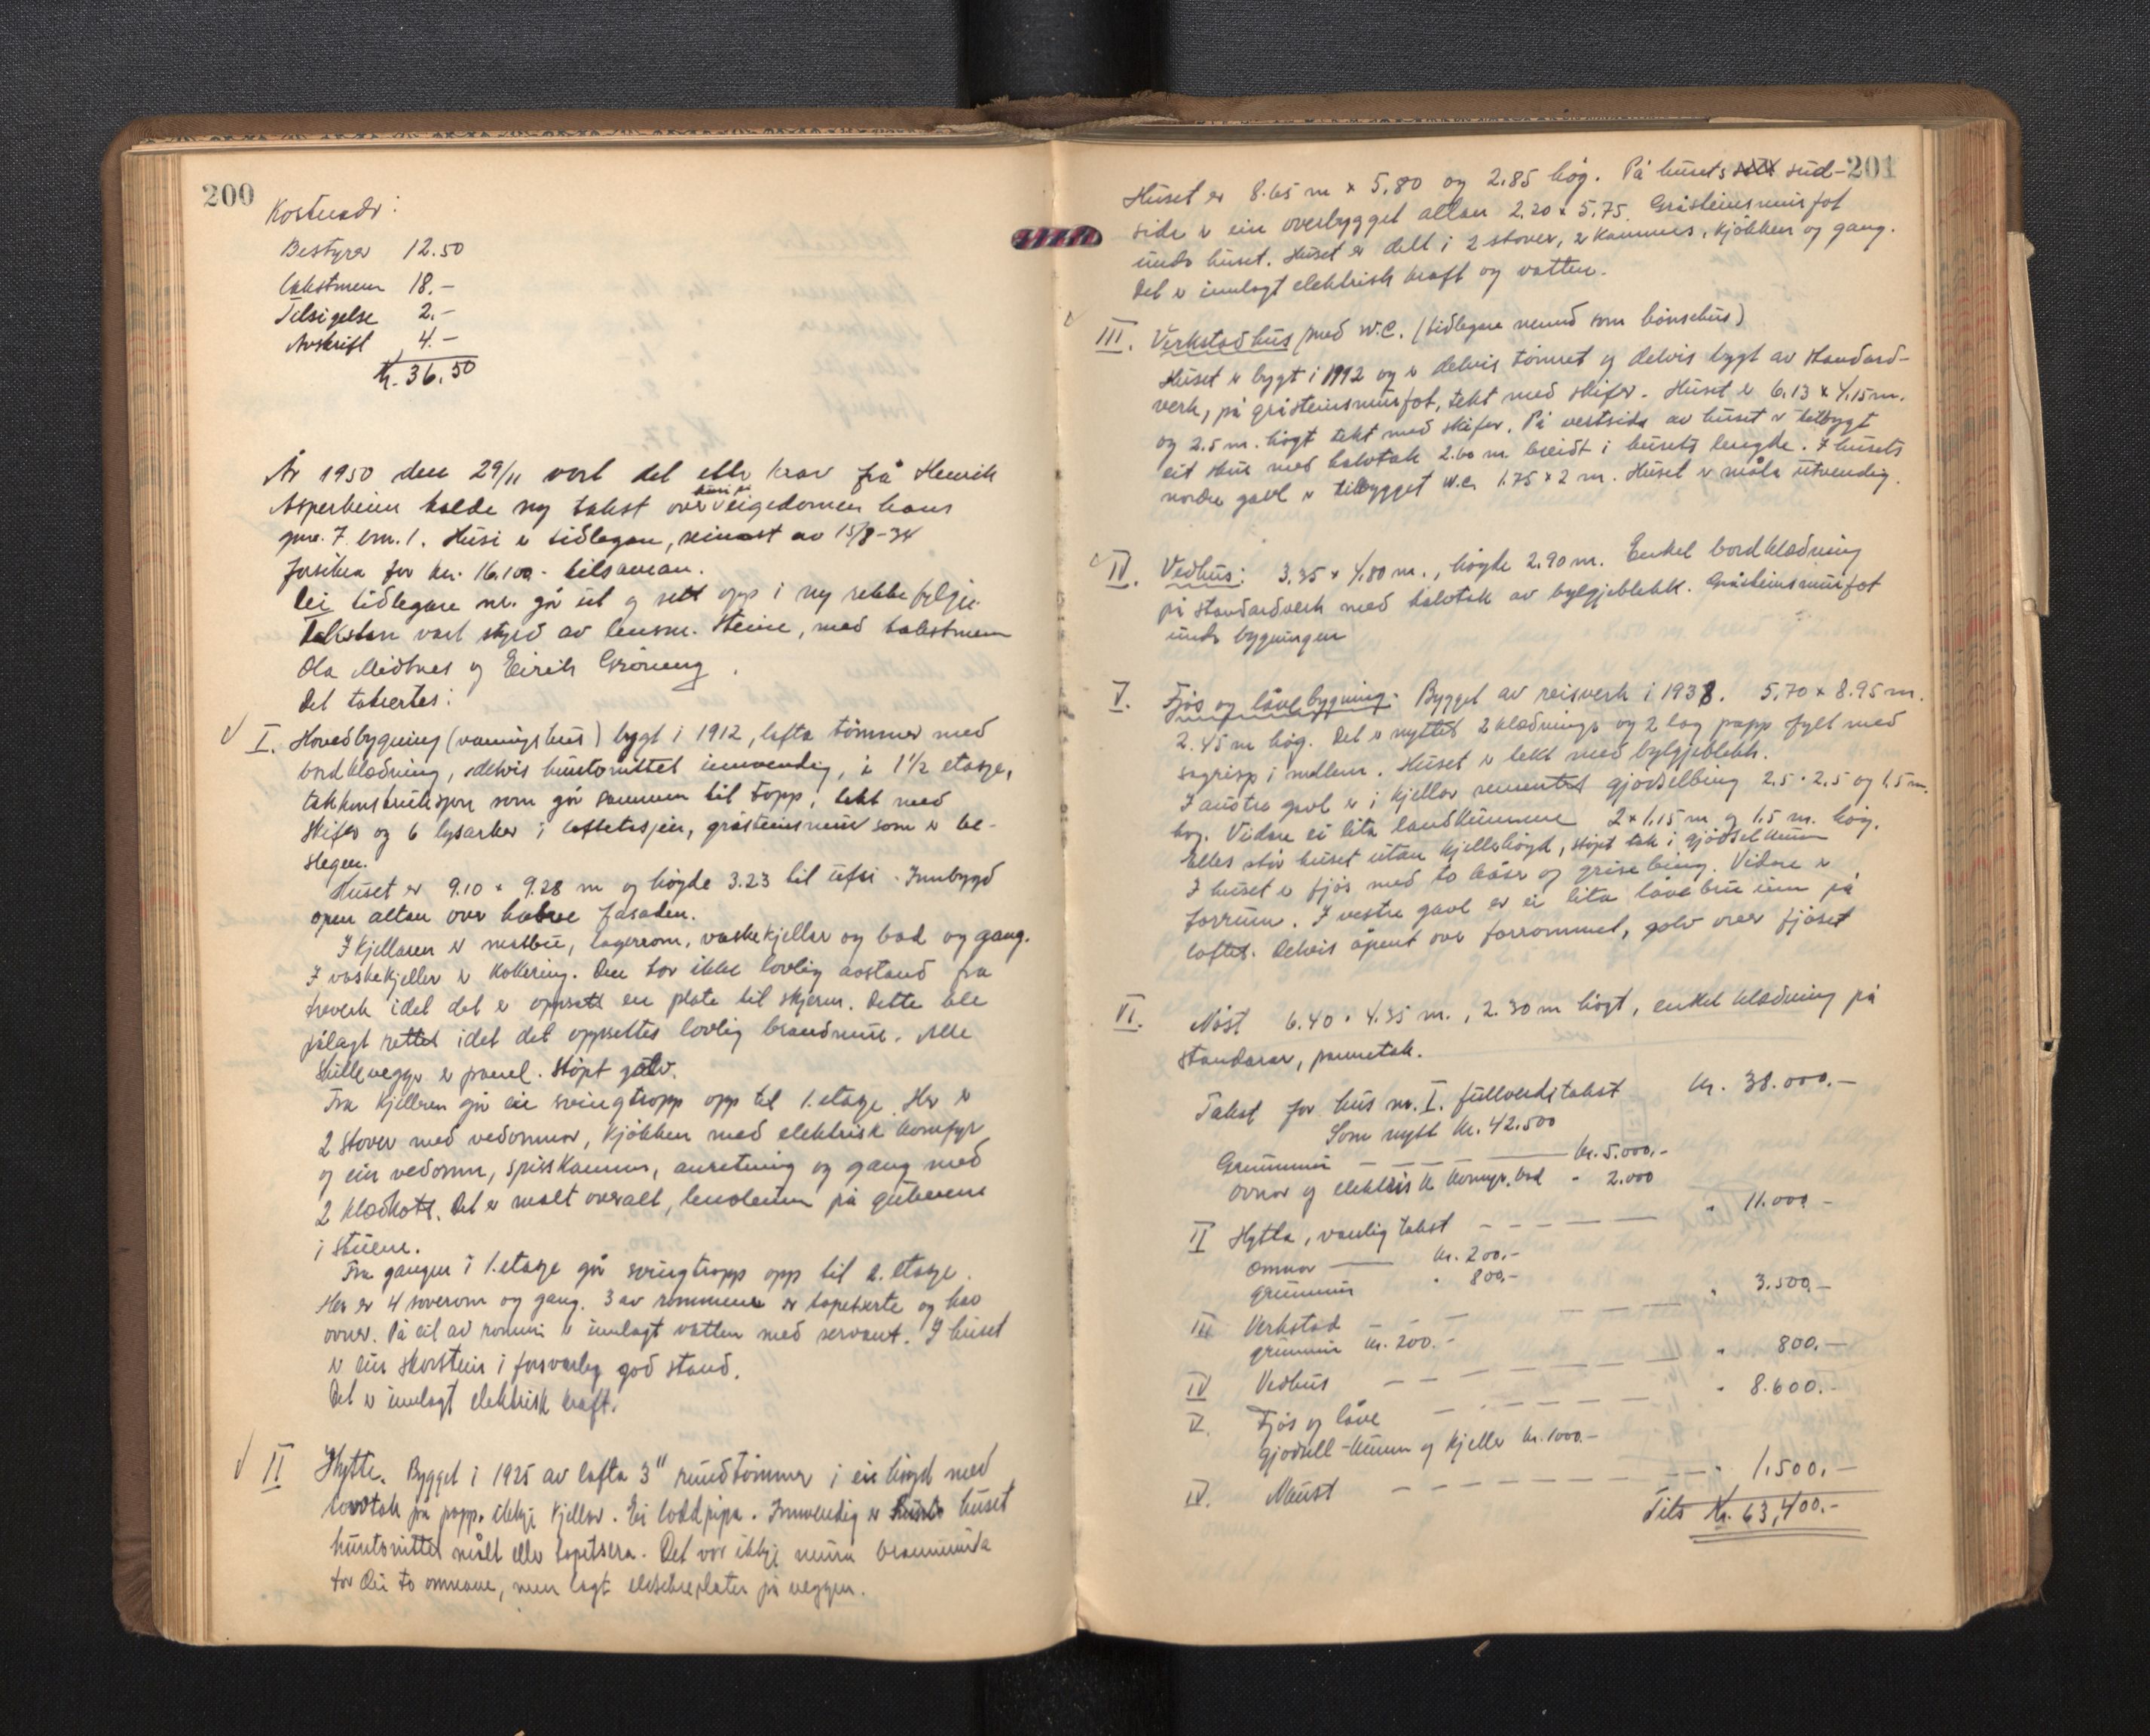 200
Kostnadr:
Bestyrer 12.50
Takstmenn 18.-
Tilsigelse 2.-
Avskrift 4.-
kr. 36.50
År 1950 den 29/11 vart det etter krav frå Henrik
Asperheim halde ny takst over husi på eigedomen hans
gnr. 7 bnr. 1. Husi er tidlegare, seinast av 15/8-34
forsikra for kr. 16.100.- tilsaman.
Dei tidlegare nr. går ut og sett opp i ny rekkefylgje.
Taksten vart styrd av lensm. Steine, med takstmenn
Ola Midtnes og Eirik Gröneng.
Det taksertes:
I. Hovedbygning (vaaningshus) bygt i 1912, lafta tömmer med
bordklædning, delvis huntonittet innvendig, i 1 1/2 etasje,
takkonstruksjon som går sammen til topp, tekt med
skifer og 6 lysarker i loftetasjen, gråsteinsmur som er be-
slegen.
Huset er 9.10 x 9.28 m og högde 3.23 til ufsi. Innbygd
open altan over halve fasaden.
I kjellaren er matbu, lagerrom, vaskekjellar og bad og gang.
I vaskekjeller er kokering. Den har ikke lovlig avstand fra
treverk idet det er oppsatt en plate til skjerm. Dette ble
pålagt rettet idet det oppsettes lovlig brandmur. Alle
skillevegger er panel. Stöpt golv.
Fra kjelleren går ein svingtropp opp til 1. etasje. Her er
2 stover med vedomnar, kjökken med elektrisk komfyr
og ein vedomn, spisskammers, anretning og gang med
2 klædkott. Det er malt overalt, linoleum på gulvene
i stuene.
Fra gangen i 1. etasje går svingtropp opp til 2. etasje.
Her er 4 soverom og gang. 3 av rommene er tapetserte og har
ovner. På eit av rommi er innlagt vatten med servant. I huset
er ein skorstein i forsvarleg god stand.
Det er innlagt elektrisk kraft.
II Hytte. Bygget i 1925 av lafta 3" rundtömmer i ei högd med
torvtak på papp. ikkje kjellar. Ei loddpipa. Innvendig er huset
huntonittet målt eller tapetsera. Det var ikkje mura brannmura
for dei to omnane, men lagt eternitplater på veggen.
201
Huset er 8.65 m x 5,80 og 2.85 hög. På husets sud-
side er ein overbygget altan 2.20 x 5.75. Gråsteinsmurfot
under huset. Huset er delt i 2 stover, 2 kammers, kjökken og gang.
Det er innlagt elektrisk kraft og vatten.
III. Verkstadhus med W.C. (tidlegare nemnd som hönsehus)
Huset er bygt i 1912 og er delvis tömret og delvis bygt av standard-
verk, på gråsteinsmurfot, tekt med skifer. Huset er 6.13 x 4.15 m.
og 2.5 m. högt tekt med skifer. På vestsida av huset er tilbygt
eit skur med halvtak 2.60 m breidt i husets lengde. I husets
nordre gavl er tilbygget w.c. 1.75 x 2 m. Huset er måla utvendig.
IV. Vedhus: 3.35 x 4.80 m., högde 2.90 m. Enkel bordklædning
på standardverk med halvtak av bylgjeblekk. Gråsteinsmurfot
under bygningen
V. Fjös og låvebygning. Bygget av reisverk i 1938. 5.70 x 8.95 m.
2.45 m hög. Det er nyttet 2 klædnings og 2 lag papp fylt med
sagrisp i mellom. Huset er tekt med bylgjeblekk.
I austre gavl er i kjellar sementert gjödselbing 2.5 x 2.5 og 1.5 m.
hög. Vidare ei lita landkumme 2 x 1.15 m og 1.5 m. hög.
Elles står huset utan kjellarhögd, stöpt tak i gjödselkum
I huset er fjös med to båser og grisebing. Vidare er
forrum. I vestre gavl er ei lita låvebru inn på
loftet. Delvis åpent over forrommet, golv over fjöset
VI. Nöst 6.40 x 4.35 m., 2.30 m högt, enkel klædning på
standarar, pannetak.
Takst for hus nr. I. fullverditakst kr. 38.000.-
Som nytt kr. 42.500
Grunnmur kr. 5.000.-
Ovnar og elektrisk komfyr, bad " 2.000
II Hytta, vanlig takst " 11.000.-
omnar kr. 200.-
grunnmur " 800.-
III Verkstad " 3.500.-
grunnmur kr. 200.-
IV Vedhus " 800.-
V. Fjös og låve " 8.600.-
gjödsell-kum og kjeller kr. 1000.-
IV. Naust " 1.500.-
Tils kr. 63,400.-